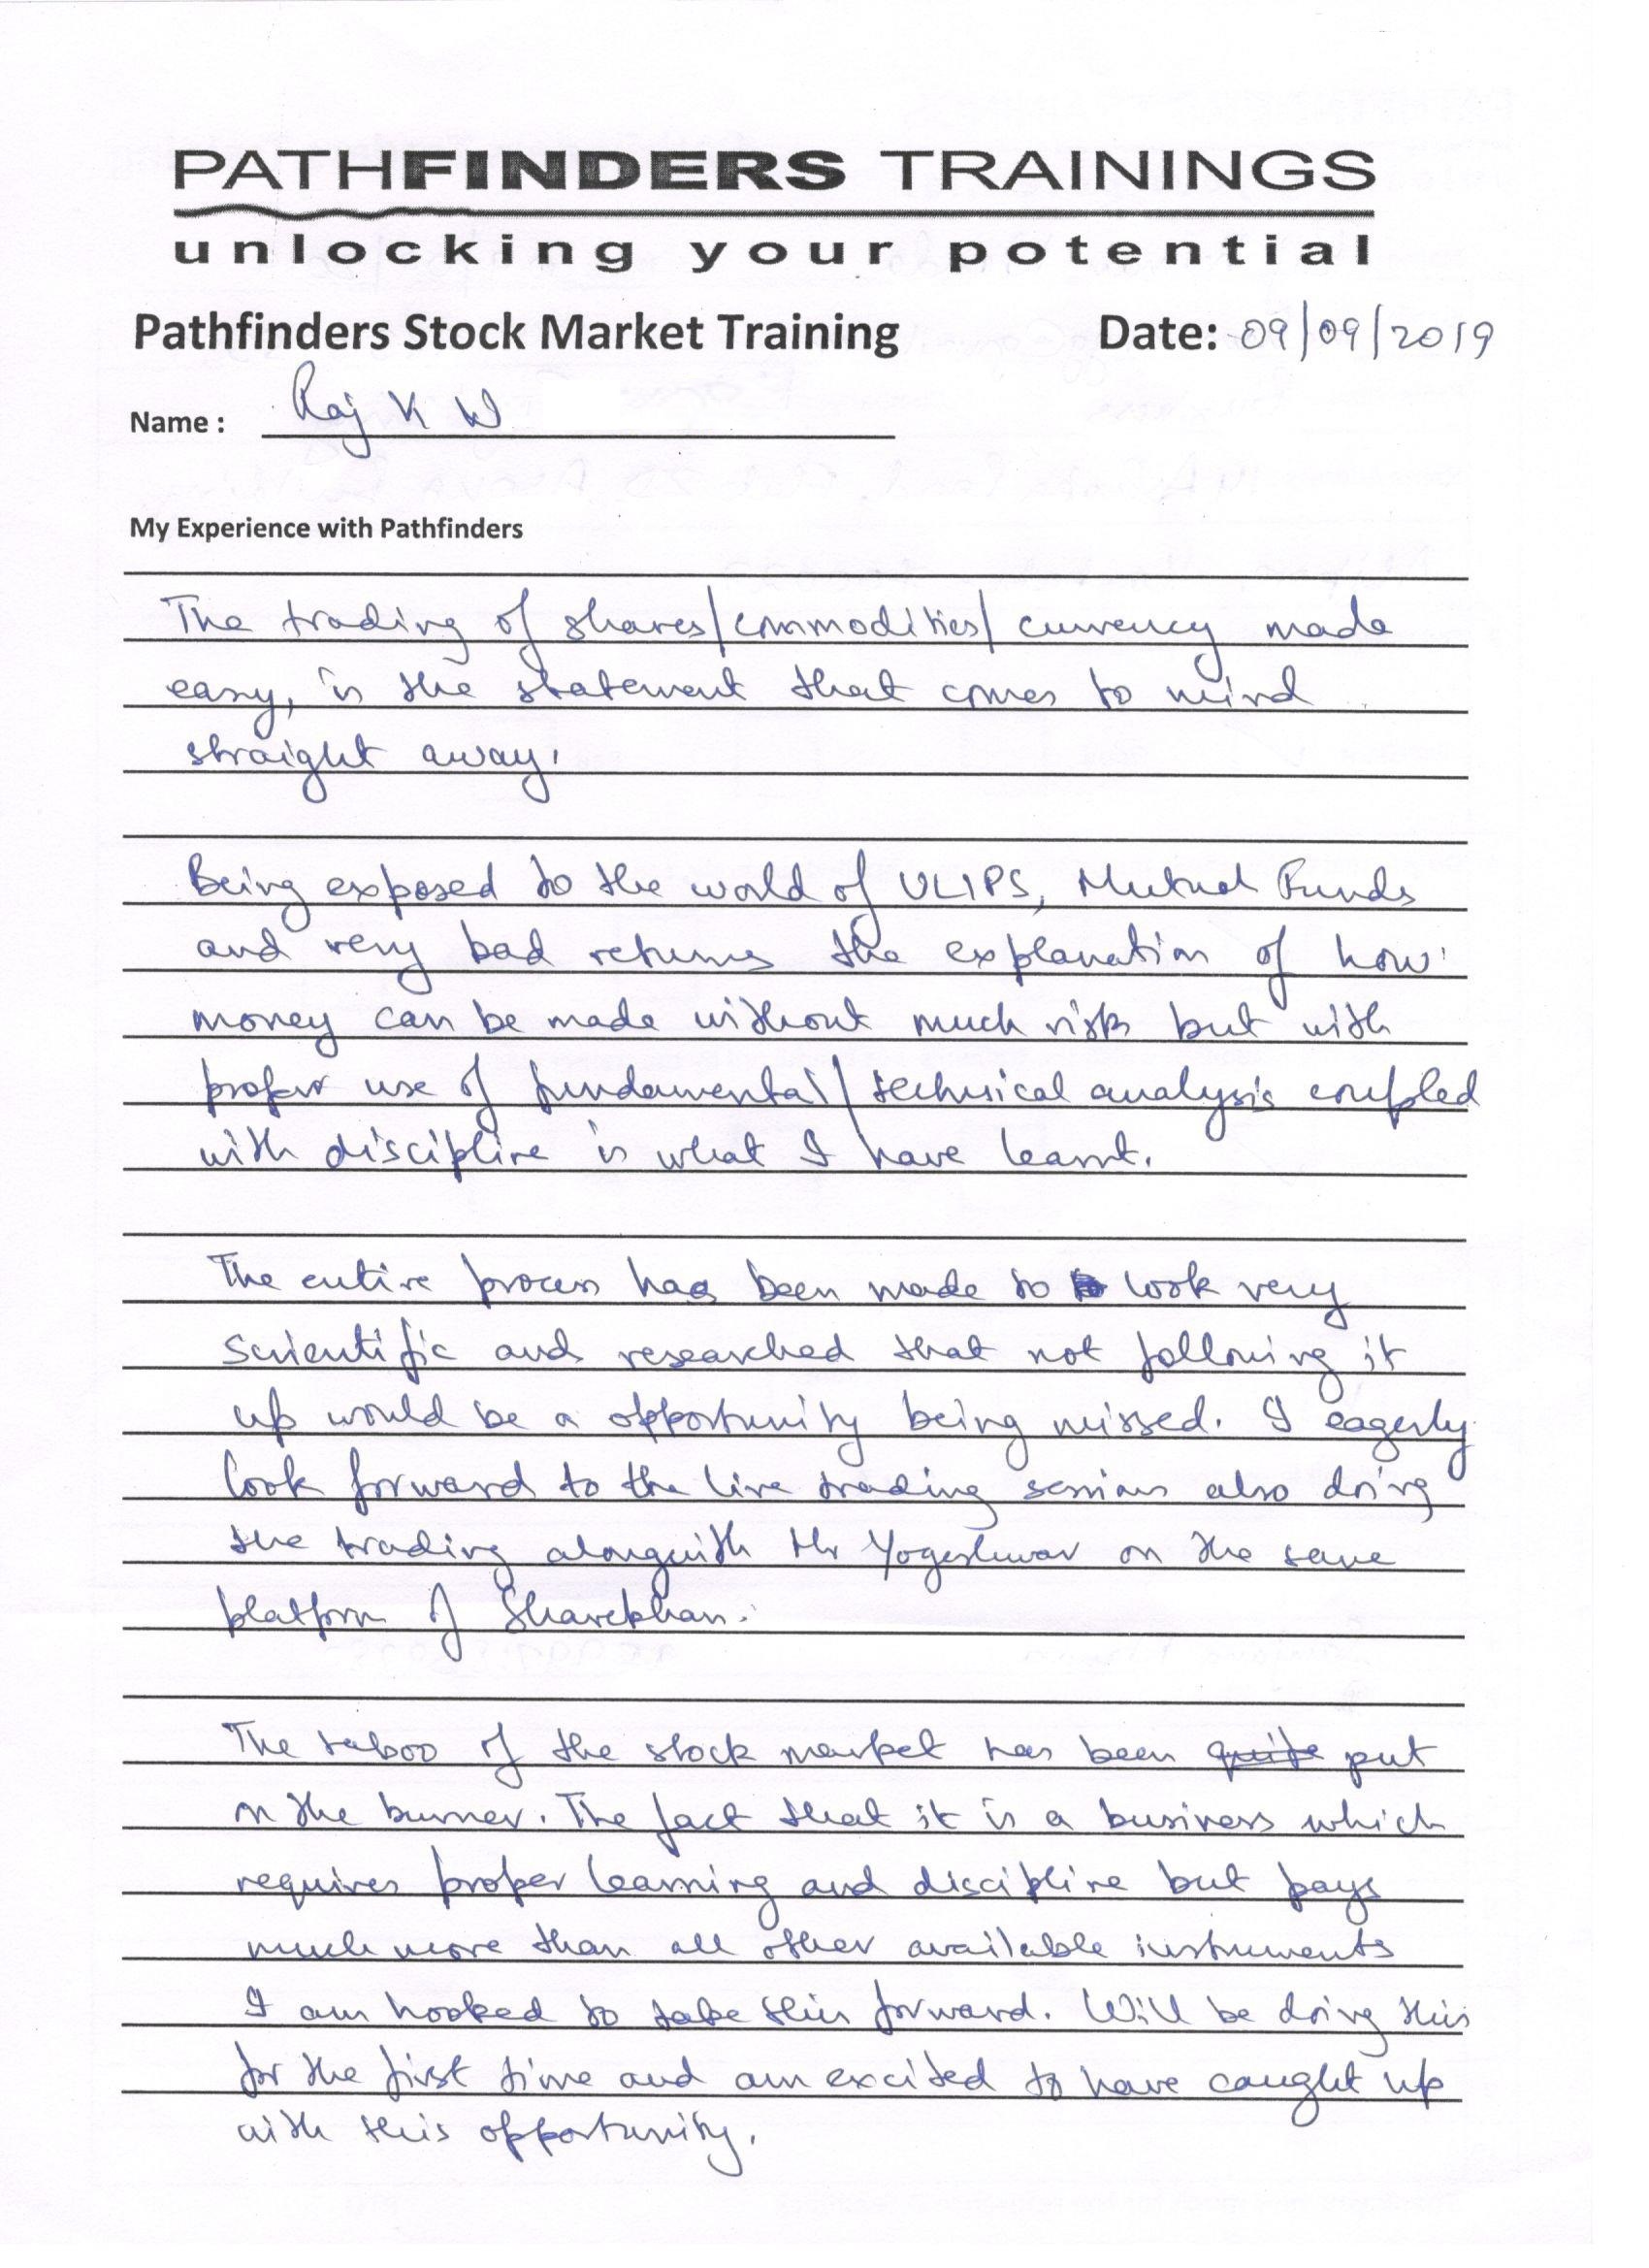 PATHFINDERS TRAININGS
unlocking your potential
Pathfinders Stock Market Training Date: 09/09/2019
Name : Raj K W
My Experience with Pathfinders
The trading of shares/commodities/currency made
easy, is the statement that comes to mind
straight away.
Being exposed to the world of ULIPS, Mutual Funds
and very bad returns the explanation of how
money can be made without much risk but with
proper use of fundamental/technical analysis coupled
with discipline is what I have learnt.
The entire process has been made to look very
scientific and researched that not following it
up would be a opportunity being missed. I eagerly
look forward to the live trading sessions also doing
the trading alongwith Mr Yogeshwar on the same
platform of Sharekhan.
The taboo of the stock market has been quite put
on the burner. The fact that it is a business which
requires proper learning and discipline but pays
much more than all other available instruments
I am hooked to take this forward. Will be doing this
for the first time and am excited to have caught up
with this opportunity.